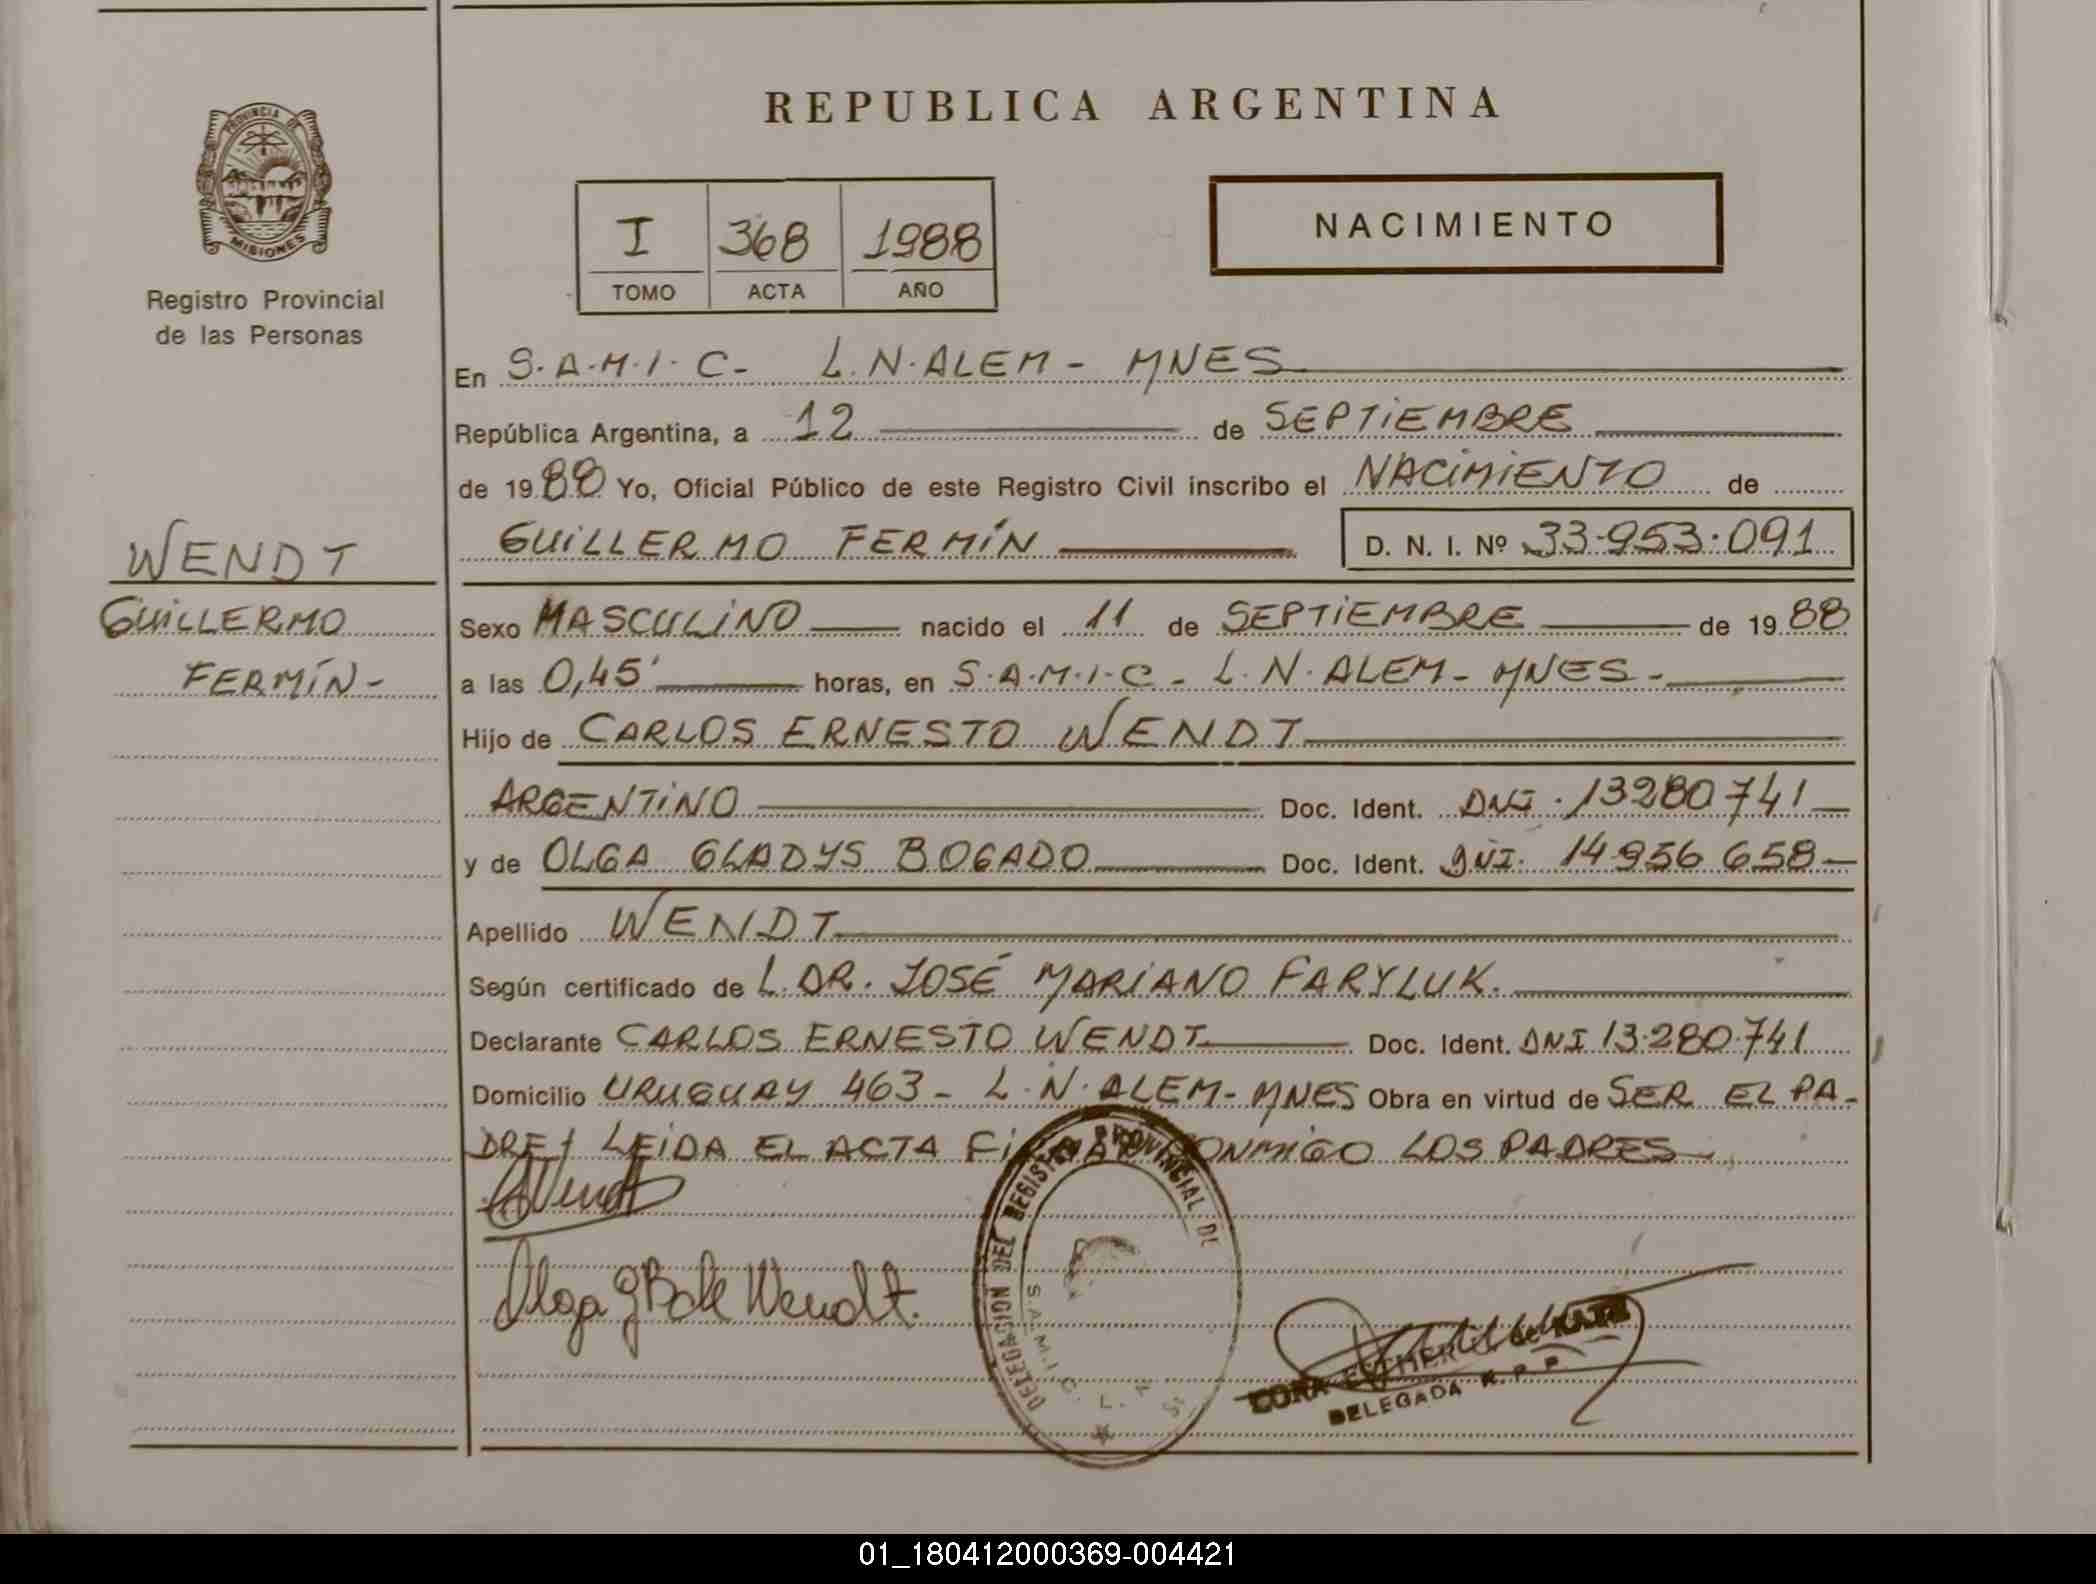 REPUBLICA ARGENTINA
PROVINCIA DE
MISIONES
Registro Provincial
de las Personas
I 368 1988
TOMO ACTA AÑO
NACIMIENTO
En S.A.M.I.C- L.N.ALEM - MNES
República Argentina, a 12 de SEPTIEMBRE
de 1988 Yo, Oficial Público de este Registro Civil inscribo el NACIMIENTO de
GUILLERMO FERMÍN D. N. I. Nº 33.953.091
WENDT
GUILLERMO
FERMÍN-
Sexo MASCULINO nacido el 11 de SEPTIEMBRE de 1988
a las 0,45' horas, en S.A.M.I.C - L.N.ALEM - MNES -
Hijo de CARLOS ERNESTO WENDT
ARGENTINO Doc. Ident. DNI. 13280741
y de OLGA GLADYS BOGADO Doc. Ident. DNI. 14956658-
Apellido WENDT
Según certificado de L.DR. JOSÉ MARIANO FARYLUK.
Declarante CARLOS ERNESTO WENDT Doc. Ident. DNI 13.280.741
Domicilio URUGUAY 463 - L.N.ALEM - MNES Obra en virtud de SER EL PA-
DRE LEIDA EL ACTA FIRMAN CONMIGO LOS PADRES
Wendt
Olga G B de Wendt.
DELEGACION DEL REGISTRO PROVINCIAL DE
S.A.M.I.C. L.N.
ESTHER de KATZ
DELEGADA R. P. P.
01_180412000369-004421